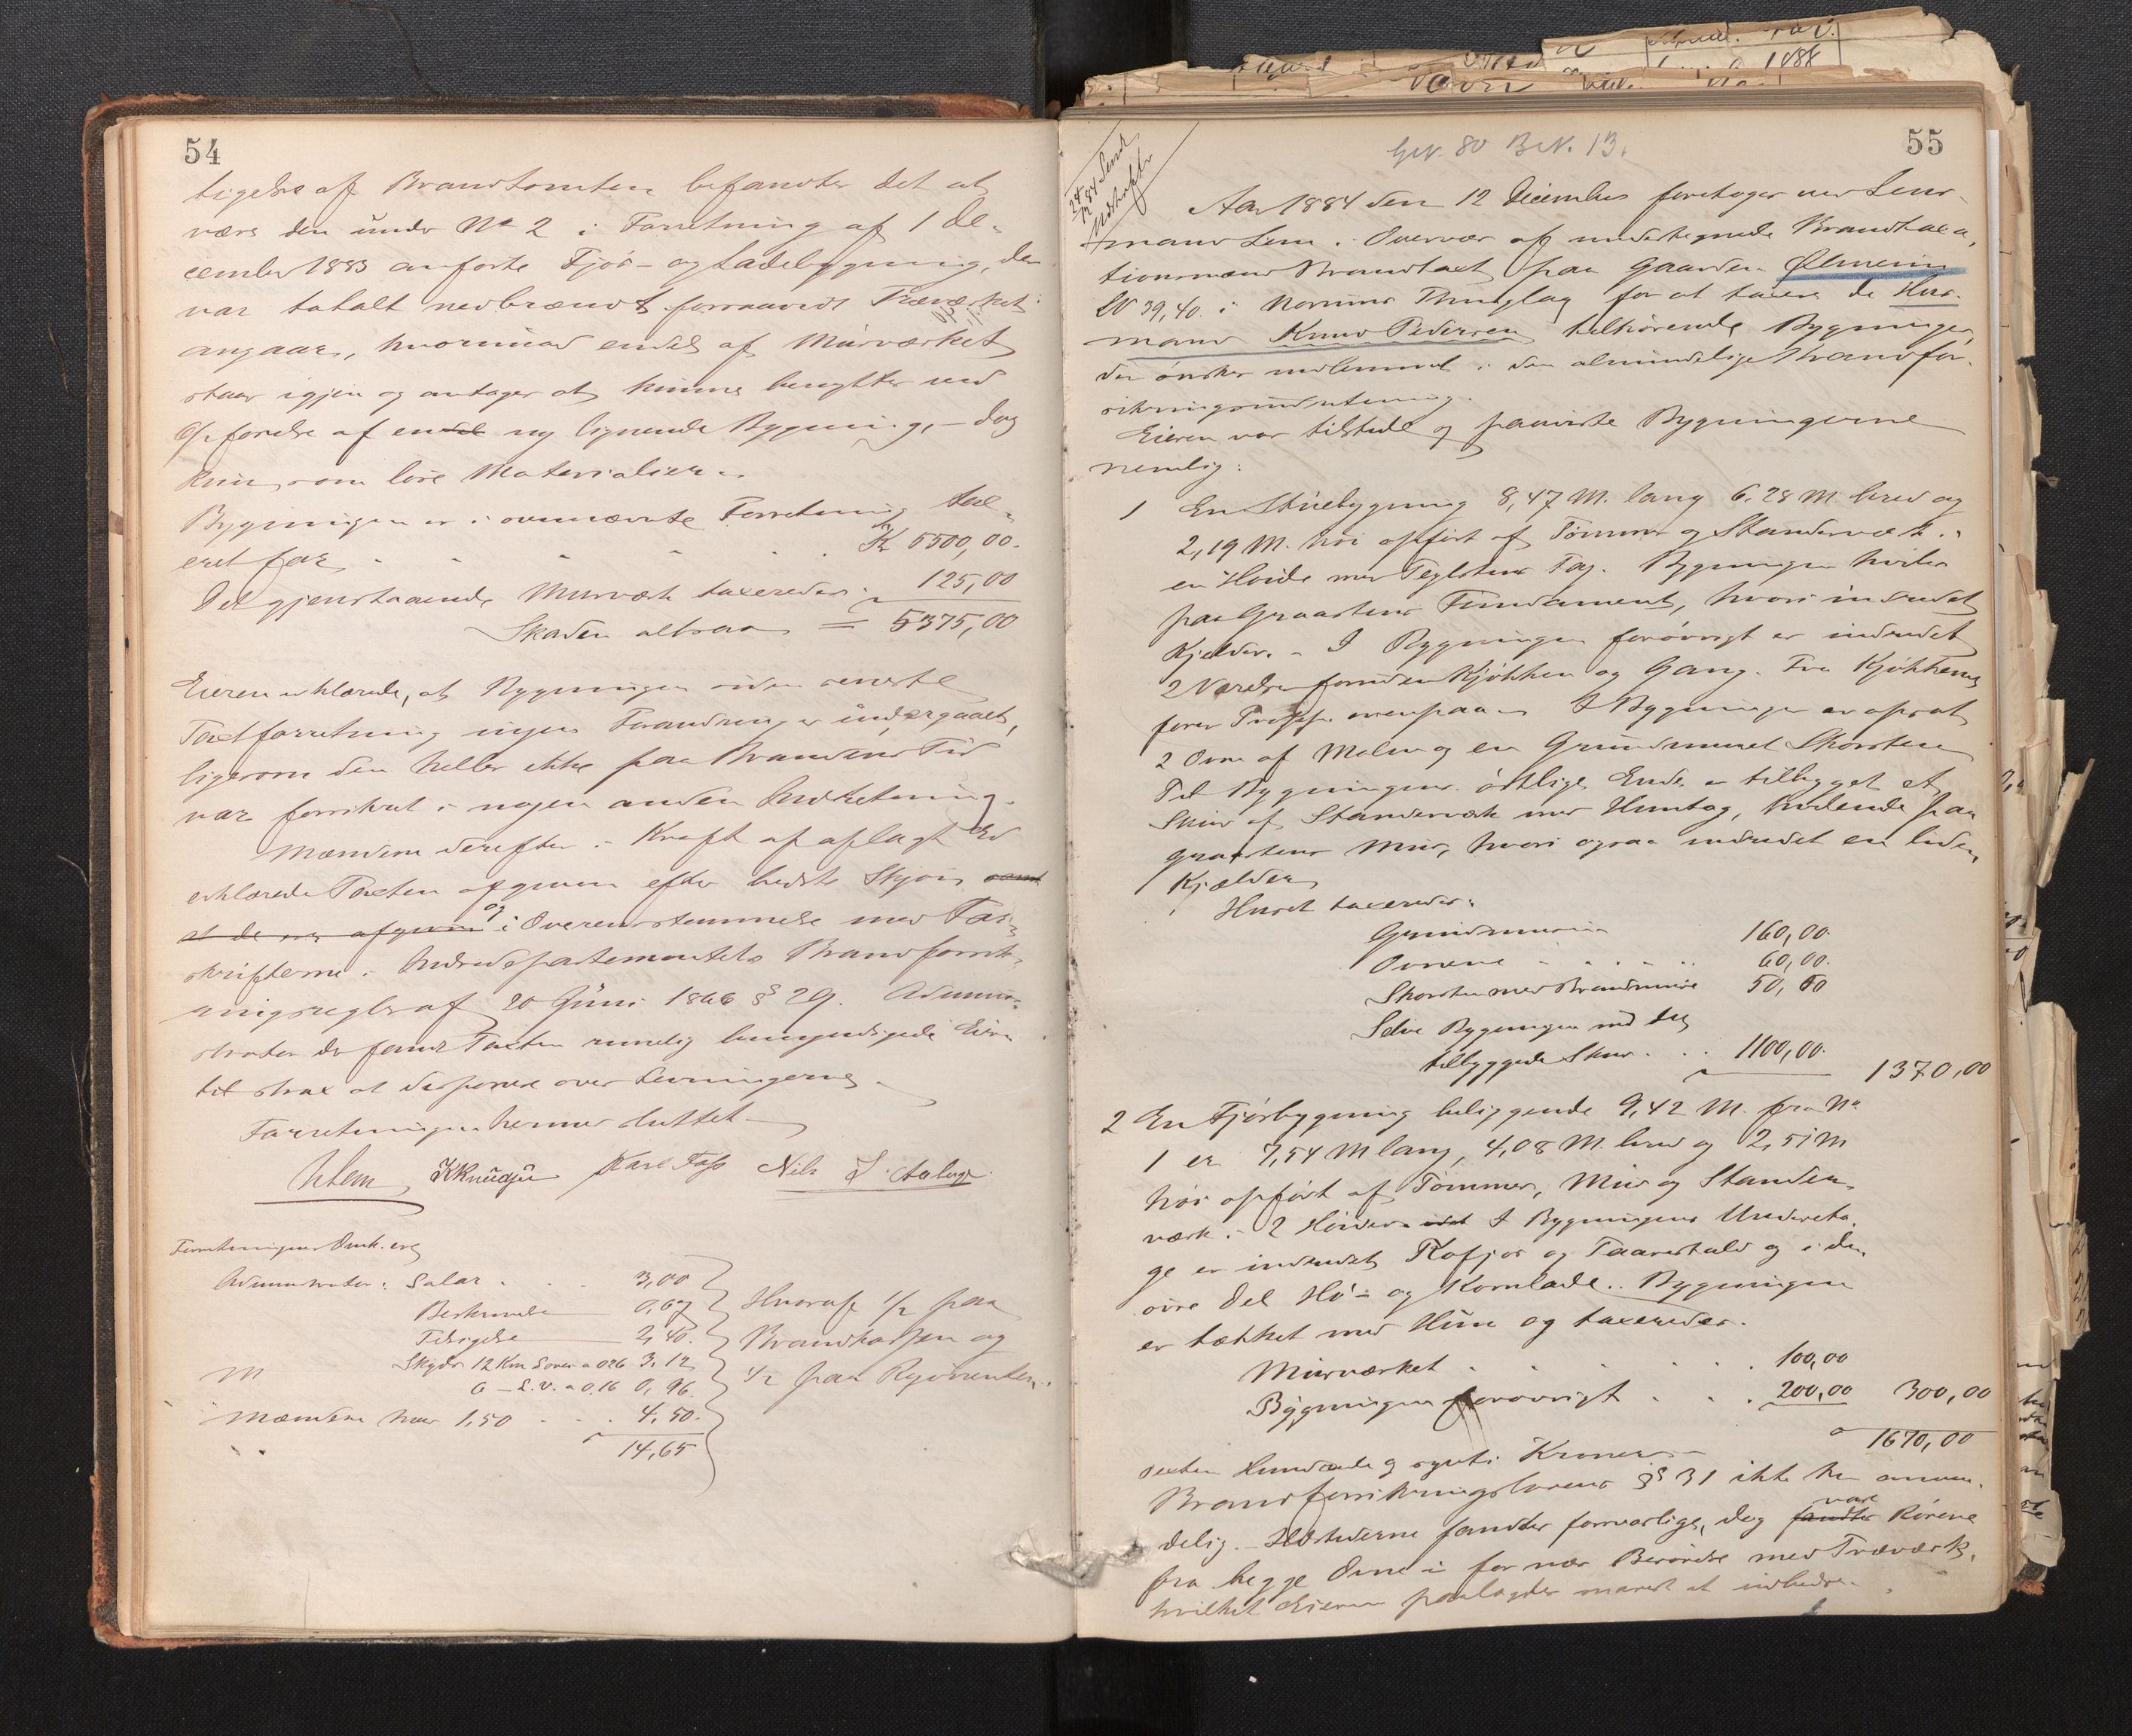 54
tigelse af Brandtomten befandtes det at
være den under No 2 i Forretning af 1 De-
cember 1883 anførte Fjøs- og Ladebygning, der
var totalt nedbrændt forsaavidt Træværket
angaar, hvorimod endel af Murværket
staar igjen og antages at kunne benyttes ved
Opførelse af en endel ny lignende Bygning, - dog
kun som løse Materialier.
Bygningen er i ovennævnte Forretning tax-
eret for Kr 5500,00.
Det gjenstaaende Murværk taxeredes 125,00
Skaden altsaa = 5375,00
Eieren erklærede, at Bygningen siden seneste
Taxtforretning ingen Forandringer undergaaet,
ligesom den heller ikke paa Brandens Tid
var forsikret i nogen anden Indretning.
Mændene derefter i Kraft af aflagt Ed
erklærede Taxten afgiven efter bedste Skjøn samt
at de er afgiven og i Overensstemmelse med For-
skrifterne i Indredepartementets Brandforsik-
ringsregler af 20 Juni 1866 § 29. Admini-
strator der fandt Taxten rimelig bemyndigede Eieren
til strax at disponere over Levningerne.
Forretningen hermed sluttet
Lem KKnudsen Karl Foss Nils I.
Forretningens Omk. ere
Administrator: Salar 3,00
Beskrivelse 0,67
Tilsigelse 2,40.
Skyds 12 Km Sovei a 026 3,12
6 - L.V. a 0,16 0,96.
Mændene hver 1,50 4,50.
14,65
Hvoraf 1/2 paa
Brandkassen og
1/2 paa Rekvirenten.
55
Gn. 80 B.N. 13.
24/12 84 Sendt
Udskrift
Aar 1884 den 12 December foretoges ved Lens-
mand Lem i Overvær af undertegnede Brandtaxa-
tionsmænd Brandtaxt paa Gaarden
LN 39,40 i Thinglag for at taxere de Huus-
mand Knud Pedersen tilhørende Bygninger
der ønskes indlemmet i den almindelige Brandfor-
sikringsindretning.
Eieren var tilstede og paaviste Bygningerne
nemlig:
1 En Stuebygning 8,47 M. lang 6.28 M. bred og
2,19 M. høi opført af Tømmer og Standerværk i
en Høide med Teglstens Tag. Bygningen hviler
paa Graastens Fundament, hvori indredet
Kjelder. - I Bygningen forøvrigt er indredet
2 Værelser foruden Kjøkken og Gang. Fra Kjøkkenet
fører Trappe ovenpaa. I Bygningen er opsat
2 Ovne af Malm og en Grundmuret Skorsten
Til Bygningens østlige Ende er tilbygget et
Skur af Standerværk med Huntag, hvilende paa
graastens Mur, hvori ogsaa indredet en liden
Kjælder
Huset taxeredes:
Grundmuren 160,00.
Ovnene 60,00.
Skorsten med Brandmure 50,00
Selve Bygningen med det
tilbyggede Skur 1100,00. 1370,00
2 En Fjøsbygning beliggende 9,42 M. fra No
1 er 7,54 M lang, 4,08 M. bred og 2,51 M
høi opført af Tømmer, Mur og Stander-
værk i 2 Høider. I Bygningens Undereta-
ge er indredet Kofjøs og Faarestald og i den
øvre Del Hø- og Kornlade. Bygningen
er tækket med Hun og taxeredes.
Murværket 100,00
Bygningen forøvrigt 200,00 300,00
1670,00
sexten Hundrede og sytti Kroner
Brandforsikringslovens § 31 ikke her anven-
delig. - Ildstederne fandtes forsvarlige, dog fandtes vare Rørene
fra begge Ovne i for nær Berørelse med Træværk,
hvilket Eieren paalagdes snarest at udbedre.